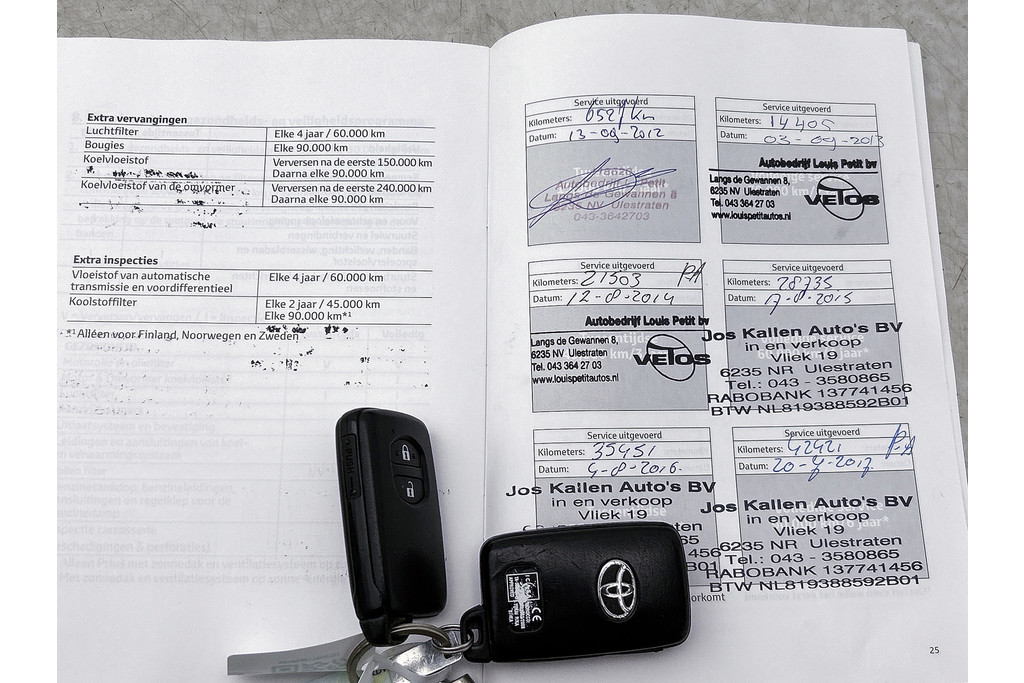 Extra vervangingen
Luchtfilter Elke 4 jaar / 60.000 km
Bougies Elke 90.000 km
Koelvloeistof Verversen na de eerste 150.000 km
Daarna elke 90.000 km
Koelvloeistof van de omvormer Verversen na de eerste 240.000 km
Daarna elke 90.000 km
Extra inspecties
Vloeistof van automatische
transmissie en voordifferentieel Elke 4 jaar / 60.000 km
Koolstoffilter Elke 2 jaar / 45.000 km
Elke 90.000 km*¹
*¹ Alléén voor Finland, Noorwegen en Zweden
Service uitgevoerd
Kilometers: 6521 km
Datum: 13-09-2012
Autobedrijf L. Petit
Langs de Gewannen 8
6235 NV Ulestraten
043-3642703
Service uitgevoerd
Kilometers: 14405
Datum: 03-09-2013
Autobedrijf Louis Petit bv
Langs de Gewannen 8,
6235 NV Ulestraten
Tel. 043 364 27 03
www.louispetitautos.nl
VELOS
Service uitgevoerd
Kilometers: 21503
Datum: 12-8-2014
Autobedrijf Louis Petit bv
Langs de Gewannen 8,
6235 NV Ulestraten
Tel. 043 364 27 03
www.louispetitautos.nl
VELOS
Service uitgevoerd
Kilometers: 28735
Datum: 17-8-2015
Jos Kallen Auto's BV
in en verkoop
Vliek 19
6235 NR Ulestraten
Tel.: 043 - 3580865
RABOBANK 137741456
BTW NL819388592B01
Service uitgevoerd
Kilometers: 35451
Datum: 4-8-2016
Jos Kallen Auto's BV
in en verkoop
Vliek 19
Ulestraten
Service uitgevoerd
Kilometers: 42421
Datum: 20-7-2017
Jos Kallen Auto's BV
in en verkoop
Vliek 19
6235 NR Ulestraten
Tel.: 043 - 3580865
RABOBANK 137741456
BTW NL819388592B01
25